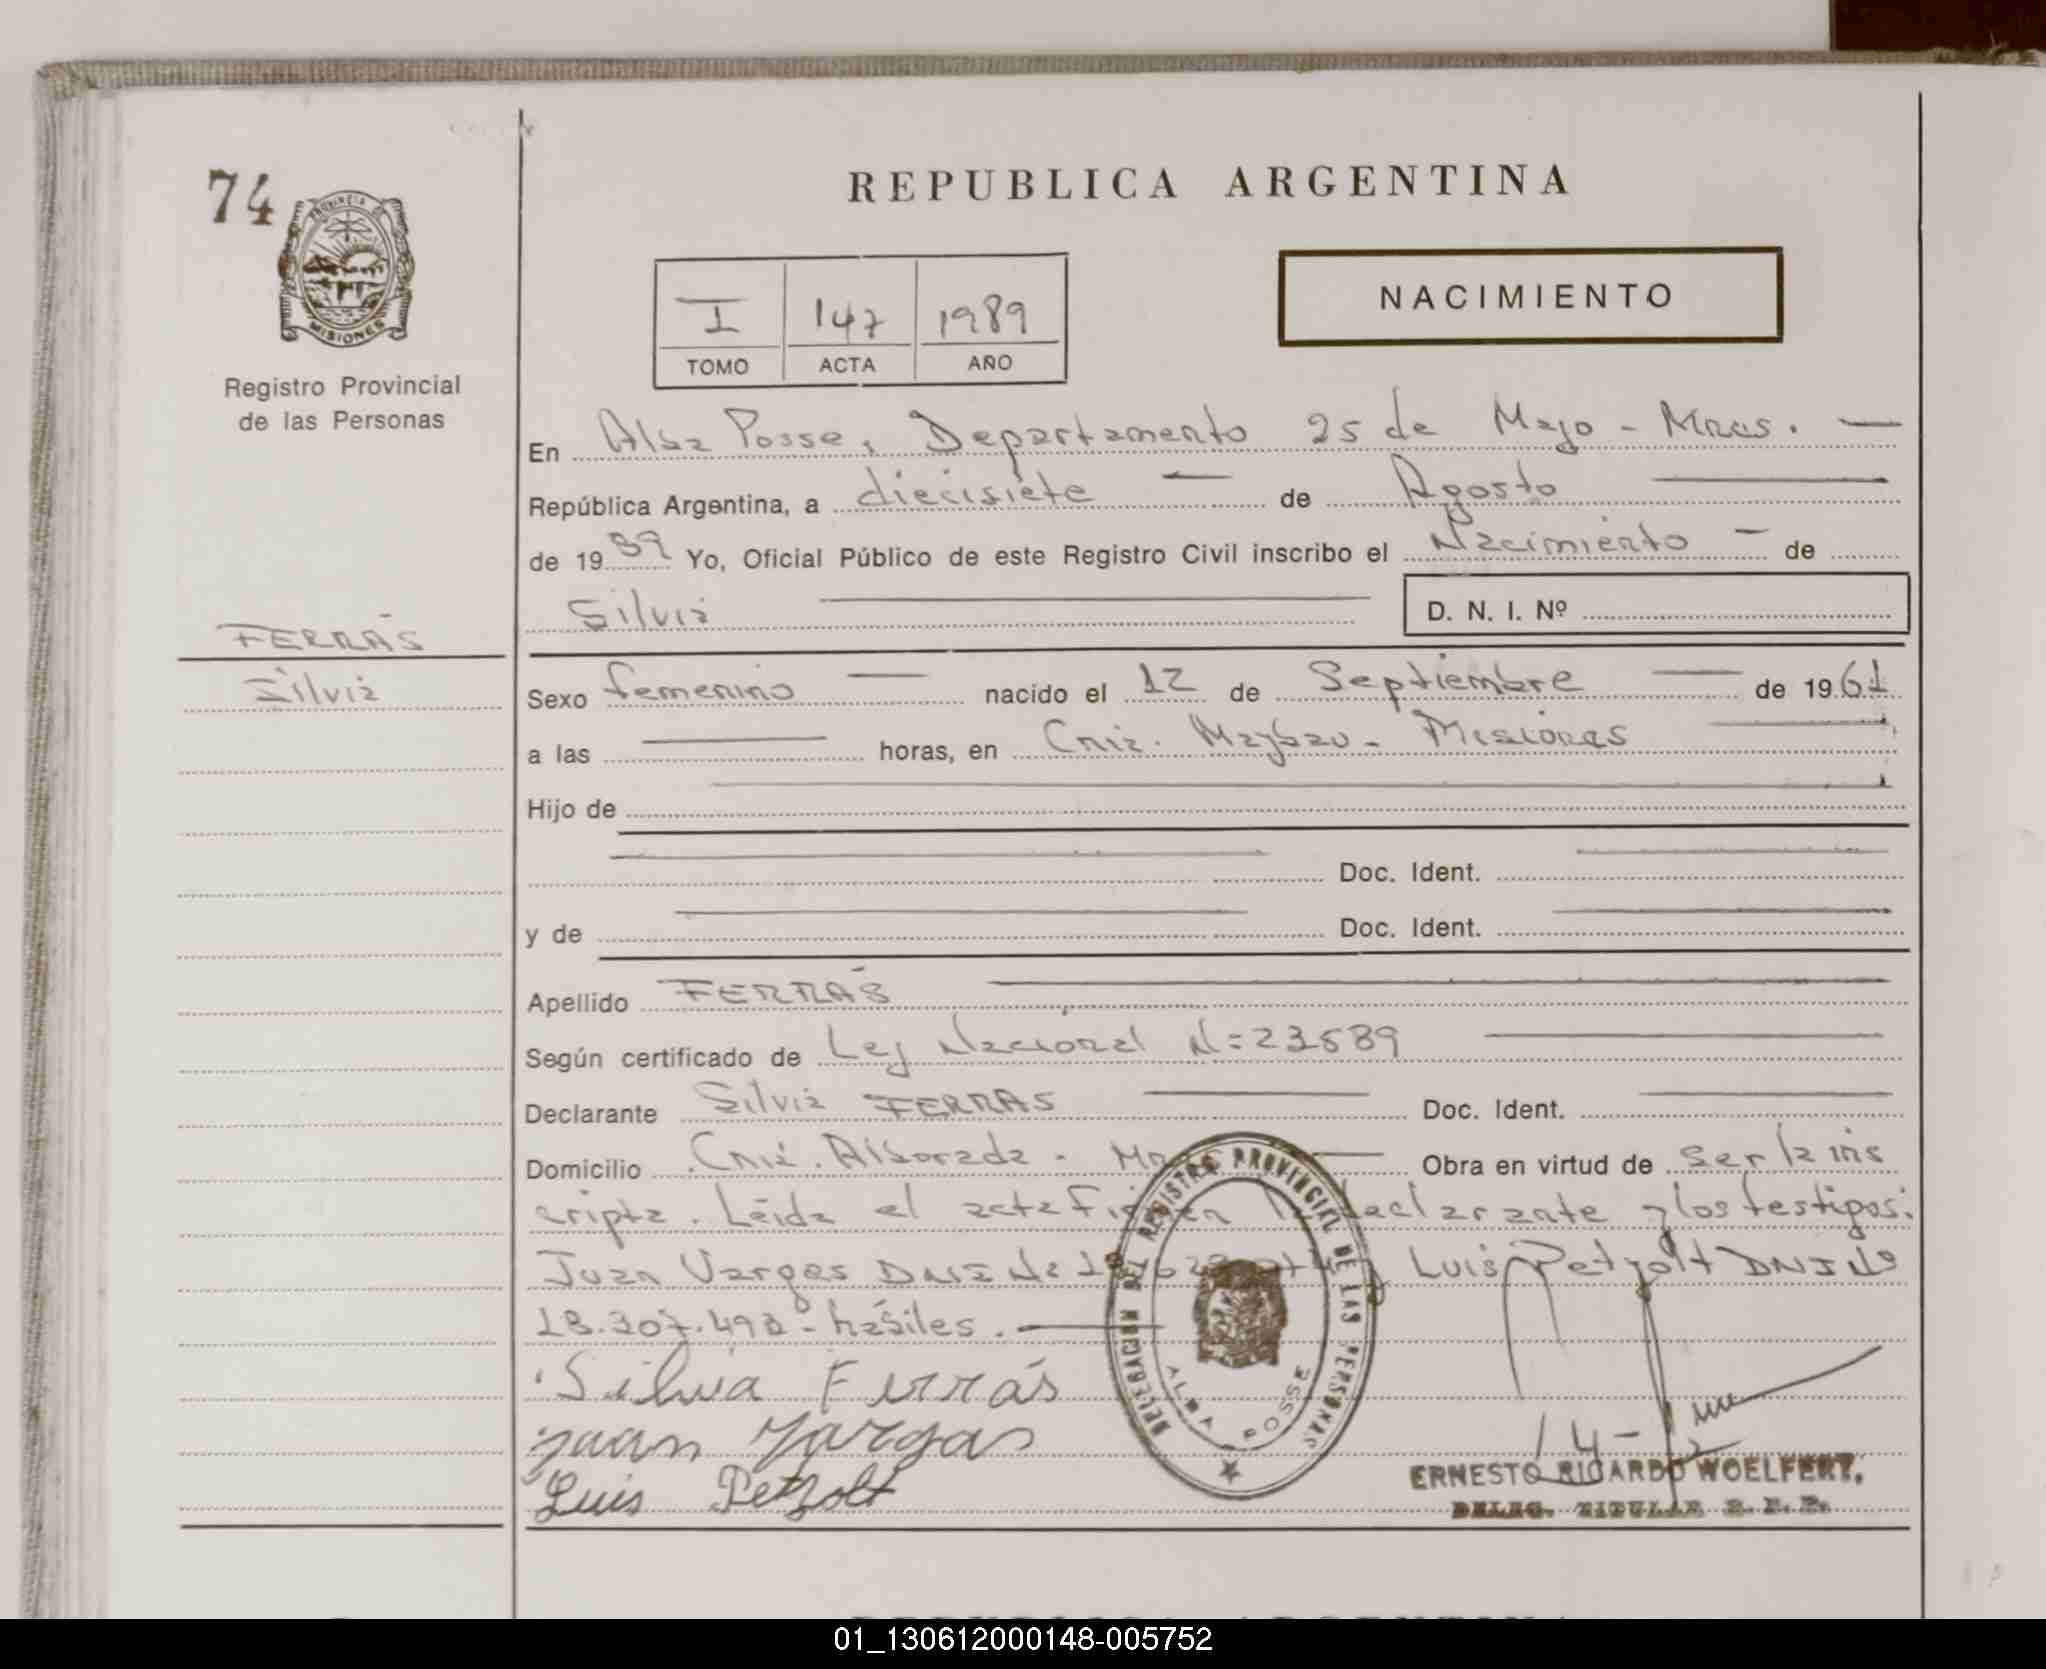 74
PROVINCIA DE
MISIONES
Registro Provincial
de las Personas
REPUBLICA ARGENTINA
I 147 1989
TOMO ACTA AÑO
NACIMIENTO
En Alba Posse, Departamento 25 de Mayo - Mnes.
República Argentina, a diecisiete de Agosto
de 1989 Yo, Oficial Público de este Registro Civil inscribo el Nacimiento de
Silvia D. N. I. Nº
FERRÁS
Silvia
Sexo femenino nacido el 12 de Septiembre de 1961
a las horas, en Cnia. Maybau - Misiones
Hijo de
Doc. Ident.
y de Doc. Ident.
Apellido FERRÁS
Según certificado de Ley Nacional N=
Declarante Silvia FERRAS Doc. Ident.
Domicilio Cnia. Alborada - Obra en virtud de ser la ins
cripta. Leída el acta la declarante y los testigos:
Juan Vargas DNI Nº Luis Petzolt DNI Nº
hábiles.
Silvia Ferrás
Juan Vargas
Luis Petzolt
DELEGACION DEL REGISTRO PROVINCIAL DE LAS PERSONAS
ALBA POSSE
ERNESTO RICARDO WOELFERT.
DELEG. TITULAR R. P. P.
01_130612000148-005752